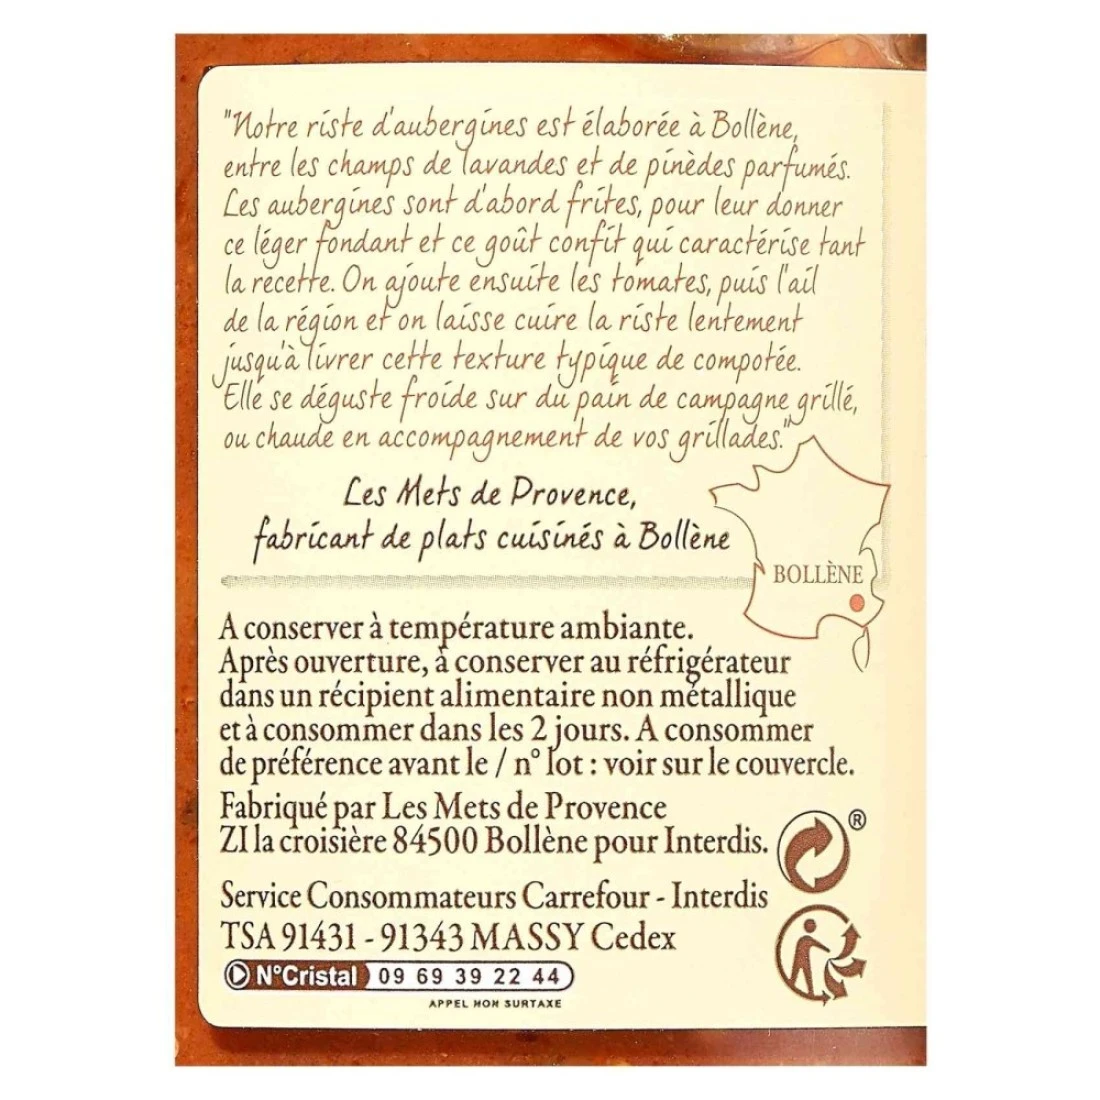 "Notre riste d'aubergines est élaborée à Bollène,
entre les champs de lavandes et de pinèdes parfumés.
Les aubergines sont d'abord frites, pour leur donner
ce léger fondant et ce goût confit qui caractérise tant
la recette. On ajoute ensuite les tomates, puis l'ail
de la région et on laisse cuire la riste lentement
jusqu'à livrer cette texture typique de compotée.
Elle se déguste froide sur du pain de campagne grillé,
ou chaude en accompagnement de vos grillades."
Les Mets de Provence,
fabricant de plats cuisinés à Bollène
BOLLÈNE
A conserver à température ambiante.
Après ouverture, à conserver au réfrigérateur
dans un récipient alimentaire non métallique
et à consommer dans les 2 jours. A consommer
de préférence avant le / n° lot : voir sur le couvercle.
Fabriqué par Les Mets de Provence
ZI la croisière 84500 Bollène pour Interdis.
®
Service Consommateurs Carrefour - Interdis
TSA 91431 - 91343 MASSY Cedex
N°Cristal 09 69 39 22 44
APPEL NON SURTAXE